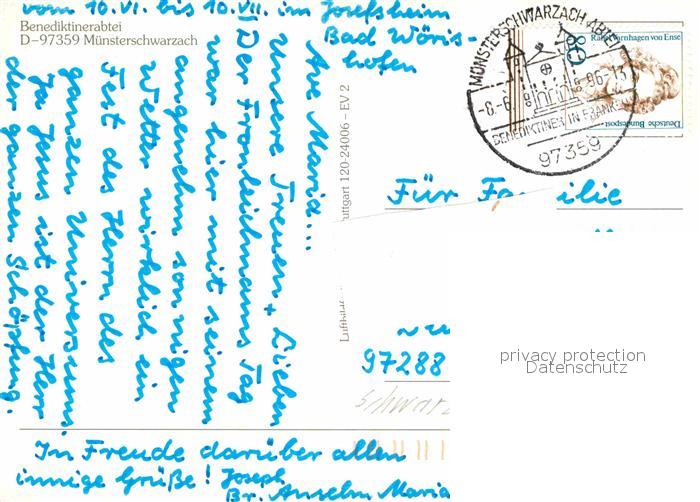 vom 10.VI. bis 10.VII. im Josefsheim
Bad Wöris-
hofen
Benediktinerabtei
D–97359 Münsterschwarzach
Ave Maria...
Unsere Treuen + Lieben
Der Fronleichnams Tag
war hier mit seinem
angenehm sonnigen
Wetter wirklich ein
Fest des Herrn des
ganzen Universums
Ja Jesus ist der Herr
der ganzen Schöpfung.
In Freude darüber allen
innige Grüße! Joseph
Br. Anselm Maria
Stuttgart 120-24006 – EV 2
MÜNSTERSCHWARZACH ABTEI
8.-6. 96-13
BENEDIKTINER IN FRANKEN
97359
80
Rahel Varnhagen von Ense
Deutsche Bundespost
Für Familie
97288
Schwarz
privacy protection
Datenschutz